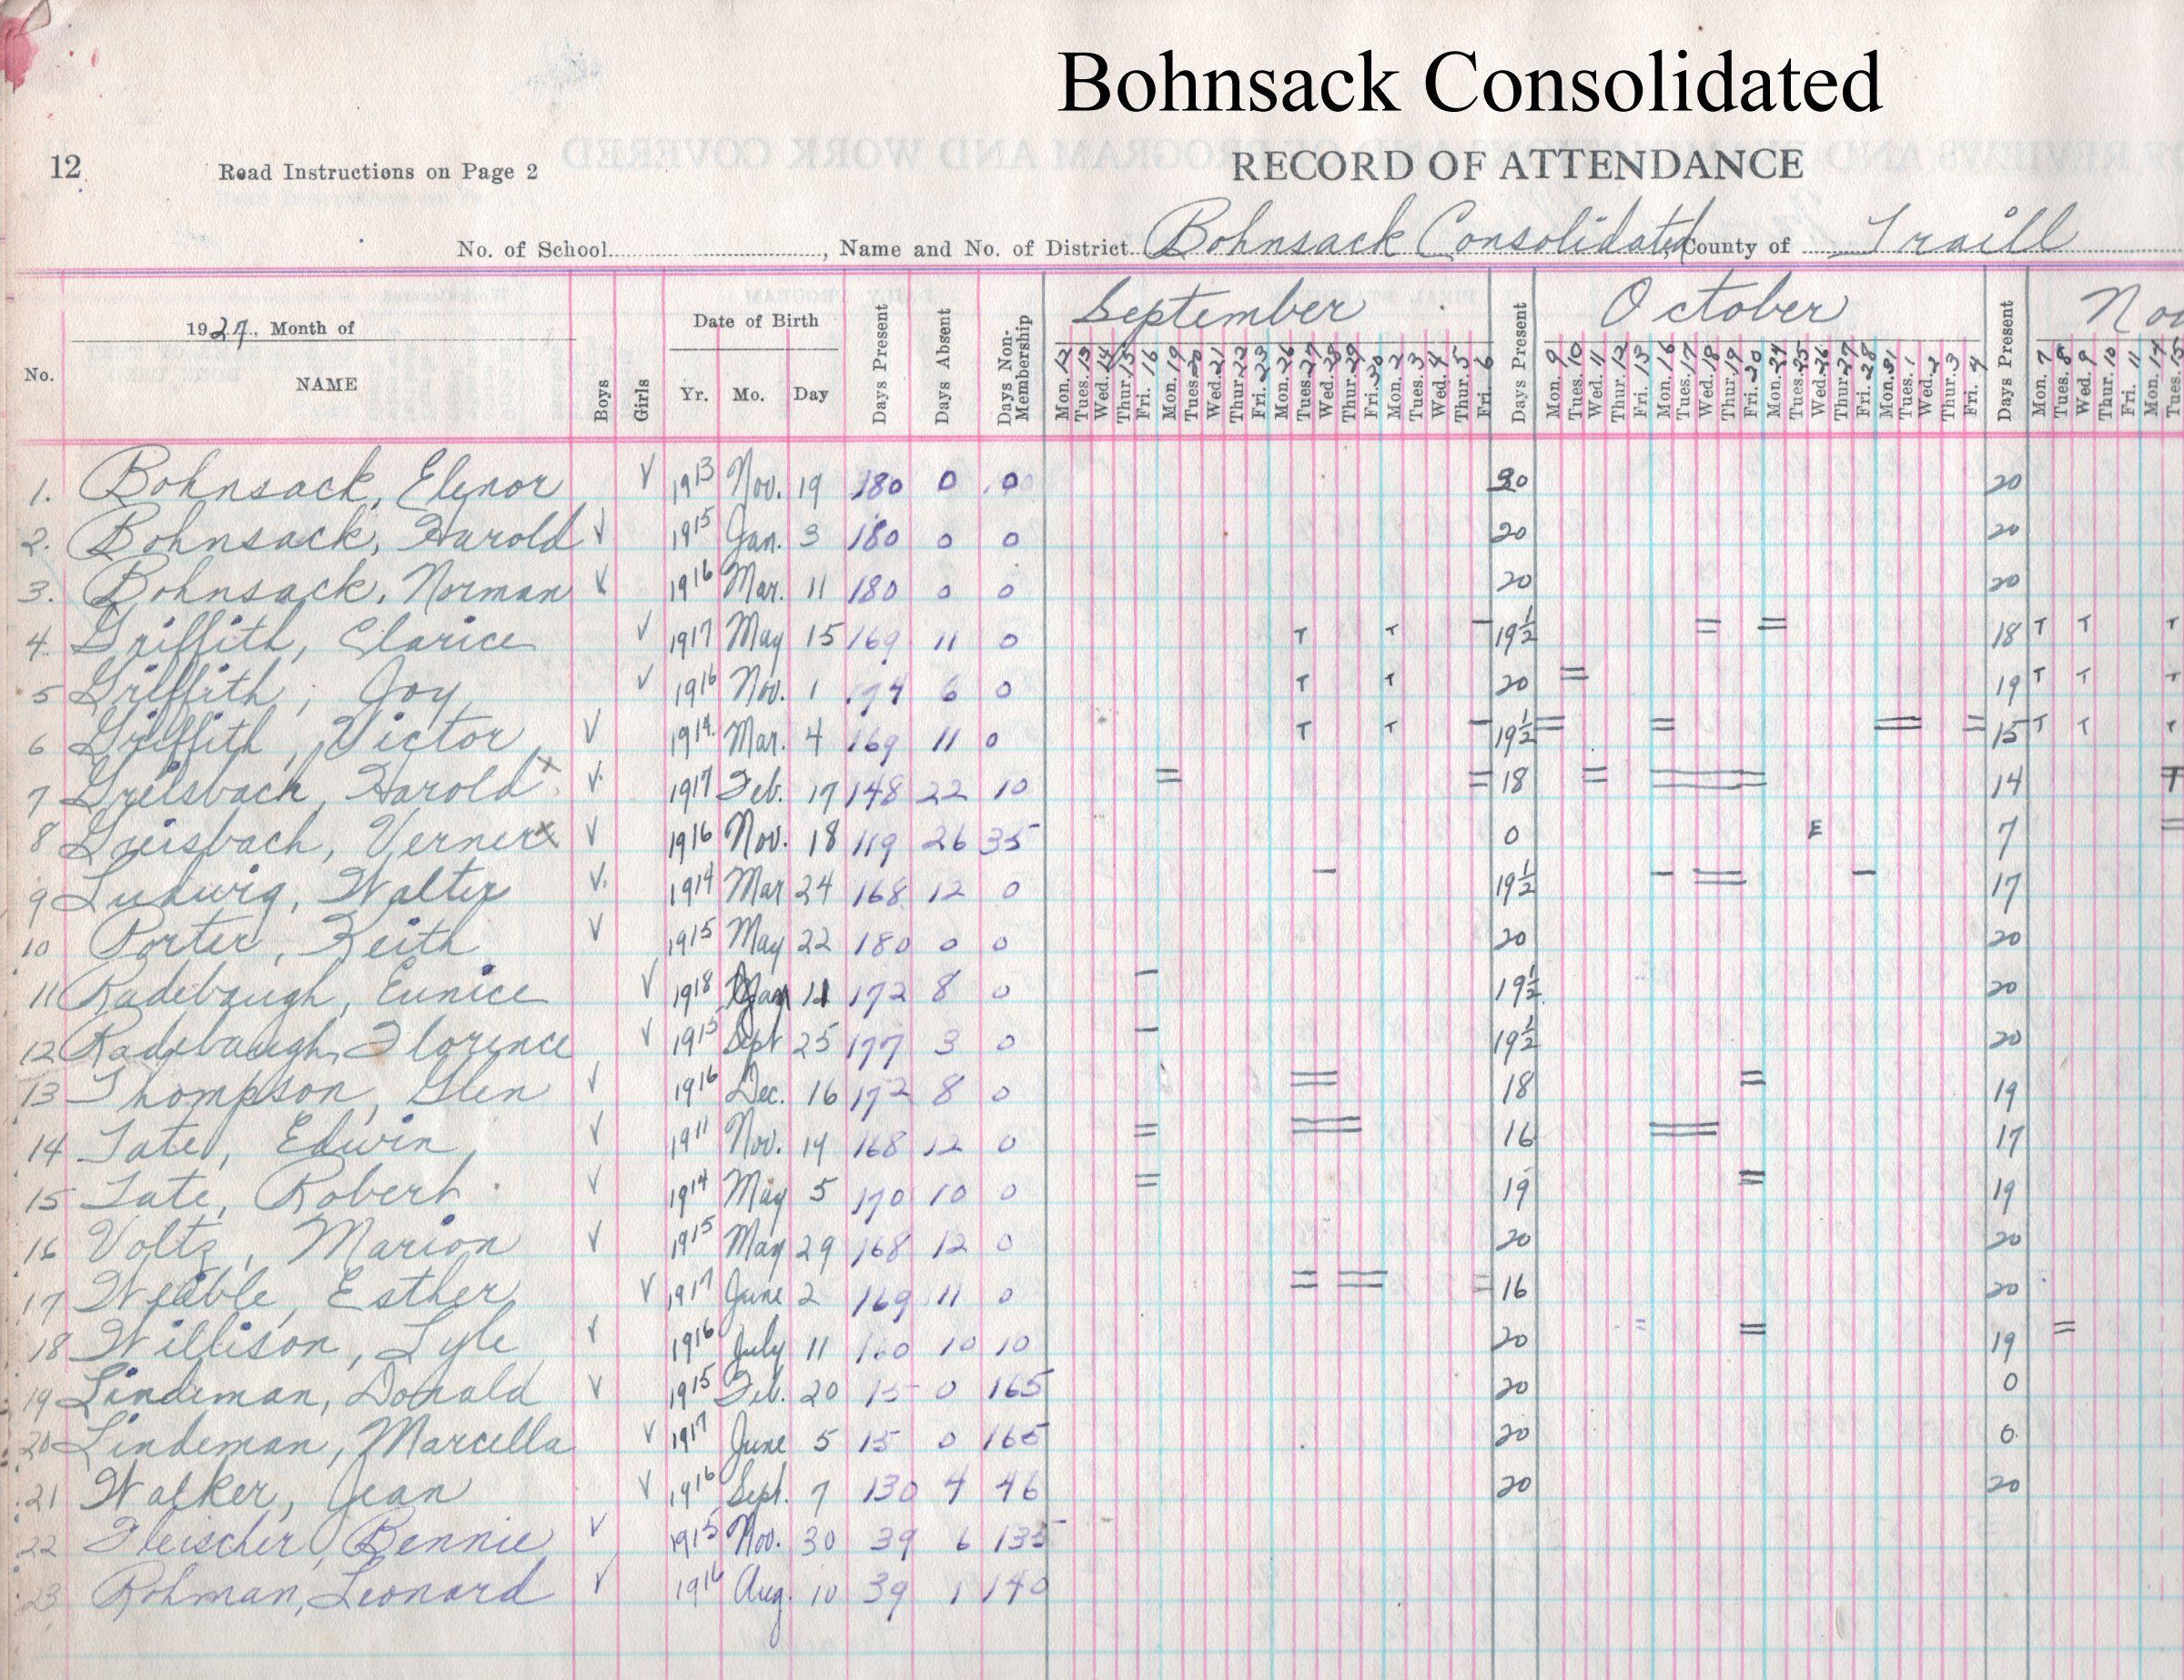 Bohnsack Consolidated
12 Read Instructions on Page 2 RECORD OF ATTENDANCE
No. of School , Name and No. of District Bohnsack Consolidated, County of Traill
1927, Month of Date of Birth September October Nov
No. NAME Boys Girls Yr. Mo. Day Days Present Days Absent Days Non-Membership Mon. 12 Tues. 13 Wed. 14 Thur. 15 Fri. 16 Mon. 19 Tues. 20 Wed. 21 Thur. 22 Fri. 23 Mon. 26 Tues. 27 Wed. 28 Thur. 29 Fri. 30 Mon. 2 Tues. 3 Wed. 4 Thur. 5 Fri. 6 Days Present Mon. 9 Tues. 10 Wed. 11 Thur. 12 Fri. 13 Mon. 16 Tues. 17 Wed. 18 Thur. 19 Fri. 20 Mon. 24 Tues. 25 Wed. 26 Thur. 27 Fri. 28 Mon. 31 Tues. 1 Wed. 2 Thur. 3 Fri. 4 Days Present Mon. 7 Tues. 8 Wed. 9 Thur. 10 Fri. 11 Mon. 14 Tues. 15
1. Bohnsack, Elenor √ 1913 Nov. 19 180 0 0 20 20
2. Bohnsack, Harold √ 1915 Jan. 3 180 0 0 20 20
3. Bohnsack, Norman √ 1916 Mar. 11 180 0 0 20 20
4. Griffith, Clarice √ 1917 May 15 169 11 0 T T – 19½ = = 18 T T T
5 Griffith, Joy √ 1916 Nov. 1 174 6 0 T T 20 = 19 T T T
6 Griffith, Victor √ 1914 Mar. 4 169 11 0 T T – 19½ = = = = 15 T T T
7 Greisbach, Harold x √ 1917 Feb. 17 148 22 10 = = 18 = = 14 T
8 Greisbach, Verner x √ 1916 Nov. 18 119 26 35 0 E 7 =
9 Ludwig, Walter √ 1914 Mar 24 168 12 0 – 19½ – = – 17
10 Porter, Keith √ 1915 May 22 180 0 0 20 20
11 Radebaugh, Eunice √ 1918 11 172 8 0 – 19½ 20
12 Radebaugh, Florence √ 1915 Sept 25 177 3 0 – 19½ 20
13 Thompson, Glen √ 1916 Dec. 16 172 8 0 = 18 = 19
14 Tate, Edwin √ 1911 Nov. 19 168 12 0 = = 16 = 17
15 Tate, Robert √ 1914 May 5 170 10 0 = 19 = 19
16 Voltz, Marion √ 1915 May 29 168 12 0 20 20
17 Weible, Esther √ 1917 June 2 169 11 0 = = = 16 20
18 Willison, Lyle √ 1916 July 11 160 10 10 20 = = 19 =
19 Lindeman, Donald √ 1915 Feb. 20 15 0 165 20 0
20 Lindeman, Marcella √ 1917 June 5 15 0 165 20 0
21 Walker, Jean √ 1916 Sept. 7 130 4 46 20 20
22 Fleischer, Bennie √ 1915 Nov. 30 39 6 135
23 Rohman, Leonard √ 1916 Aug. 10 39 1 140